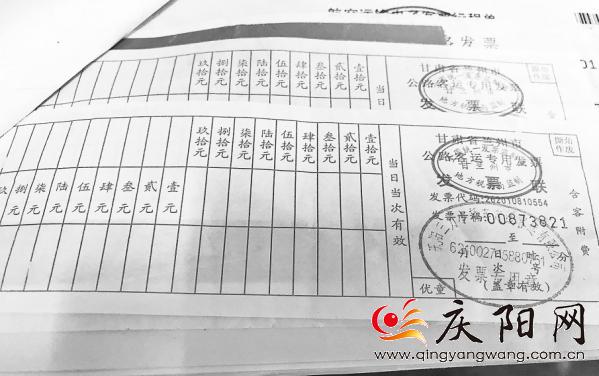 航空运输电子客票行程单
发票
甘肃省兰州市
公路客运专用发票
发票联
撕角作废
玖拾元 捌拾元 柒拾元 陆拾元 伍拾元 肆拾元 叁拾元 贰拾元 壹拾元
当日
01
甘肃省兰州市
公路客运专用发票
发票联
撕角作废
玖拾元 捌拾元 柒拾元 陆拾元 伍拾元 肆拾元 叁拾元 贰拾元 壹拾元
捌元 柒元 陆元 伍元 肆元 叁元 贰元 壹元
当日当次有效
含客附费
发票代码:262010810554
发票号码:00873821
至
月 日 时 分
发票专用章
(盖章有效)
优童
庆阳网
www.qingyangwang.com.cn